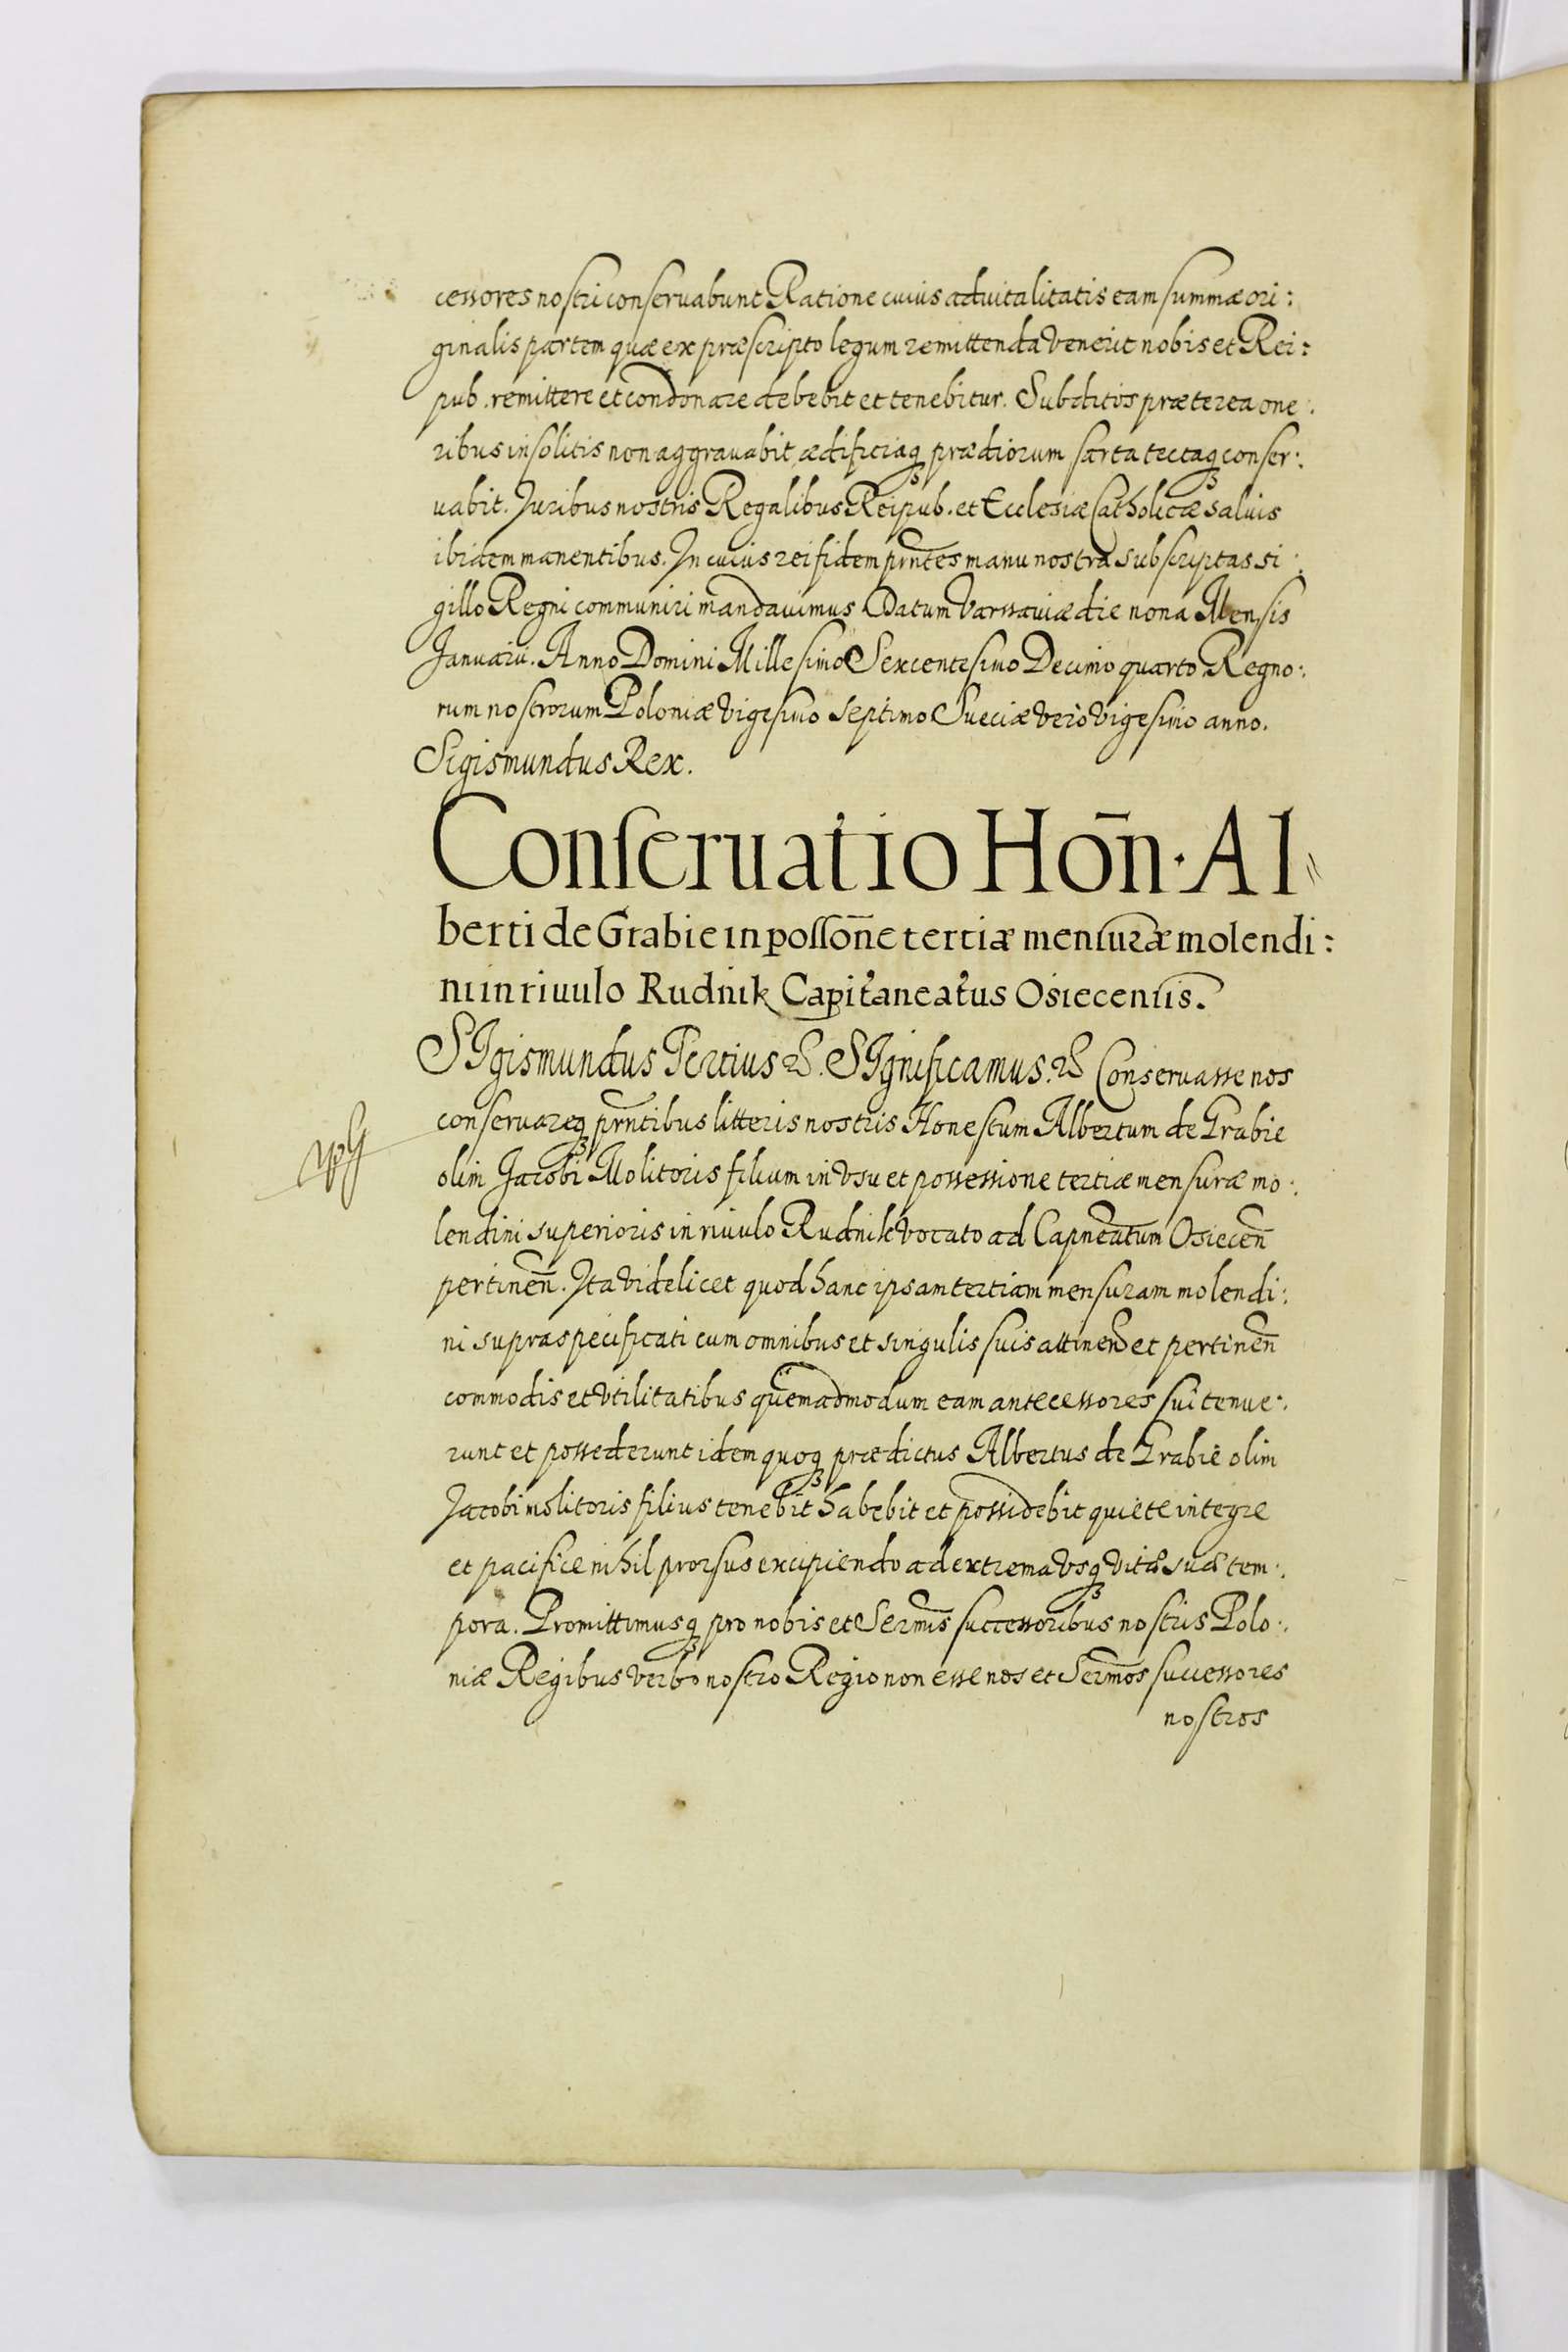 cessores nostri conservabunt Ratione cuius advitalitatis eam summæ ori:
ginalis partem quæ ex præscripto legum remittenda venerit nobis et Rei:
pub. remittere et condonare debebit et tenebitur. Subditos præterea one:
ribus insolitis non aggravabit, ædificiaqꝫ prædiorum sarta tectaqꝫ conser:
uabit. Juribus nostris Regalibus Reipub. et Ecclesiæ Catholicæ salvis
ibidem manentibus. In cuius rei fidem prñtes manu nostra subscriptas si:
gillo Regni communiri mandavimus Datum Varssaviæ die nona Mensis
Januarii. Anno Domini Millesimo Sexcentesimo Decimo quarto Regno:
rum nostrorum Poloniæ vigesimo septimo Sueciæ verò vigesimo anno.
Sigismundus Rex.
Conseruatio Hoñ. Al=
berti de Grabie in possoñe tertiæ mensuræ molendi:
ni in riuulo Rudnik Capitaneatus Osiecensis.
SIgismundus Tertius &. SIgnificamus. & Conservasse nos
conservareqꝫ prñtibus litteris nostris Honestum Albertum de Grabie
olim Jacobi Molitoris filium in vsu et possessione tertiæ mensuræ mo:
lendini superioris in riuulo Rudnik vocato ad Capneatum Osieceñ
pertineñ. Ita videlicet quod hanc ipsam tertiam mensuram molendi:
ni supraspecificati cum omnibus et singulis suis attineñ et pertineñ
commodis et vtilitatibus quemadmodum eam antecessores sui tenue:
runt et possederunt idem quoqꝫ prædictus Albertus de Grabie olim
Jacobi molitoris filius tenebit habebit et possidebit quiete integre
et pacifice nihil prorsus excipiendo ad extrema vsqꝫ vitæ suæ tem:
pora. Promittimusqꝫ pro nobis et Serm̃is successoribus nostris Polo:
niæ Regibus verbo nostro Regio non esse nos et Serm̃os successores
nostros